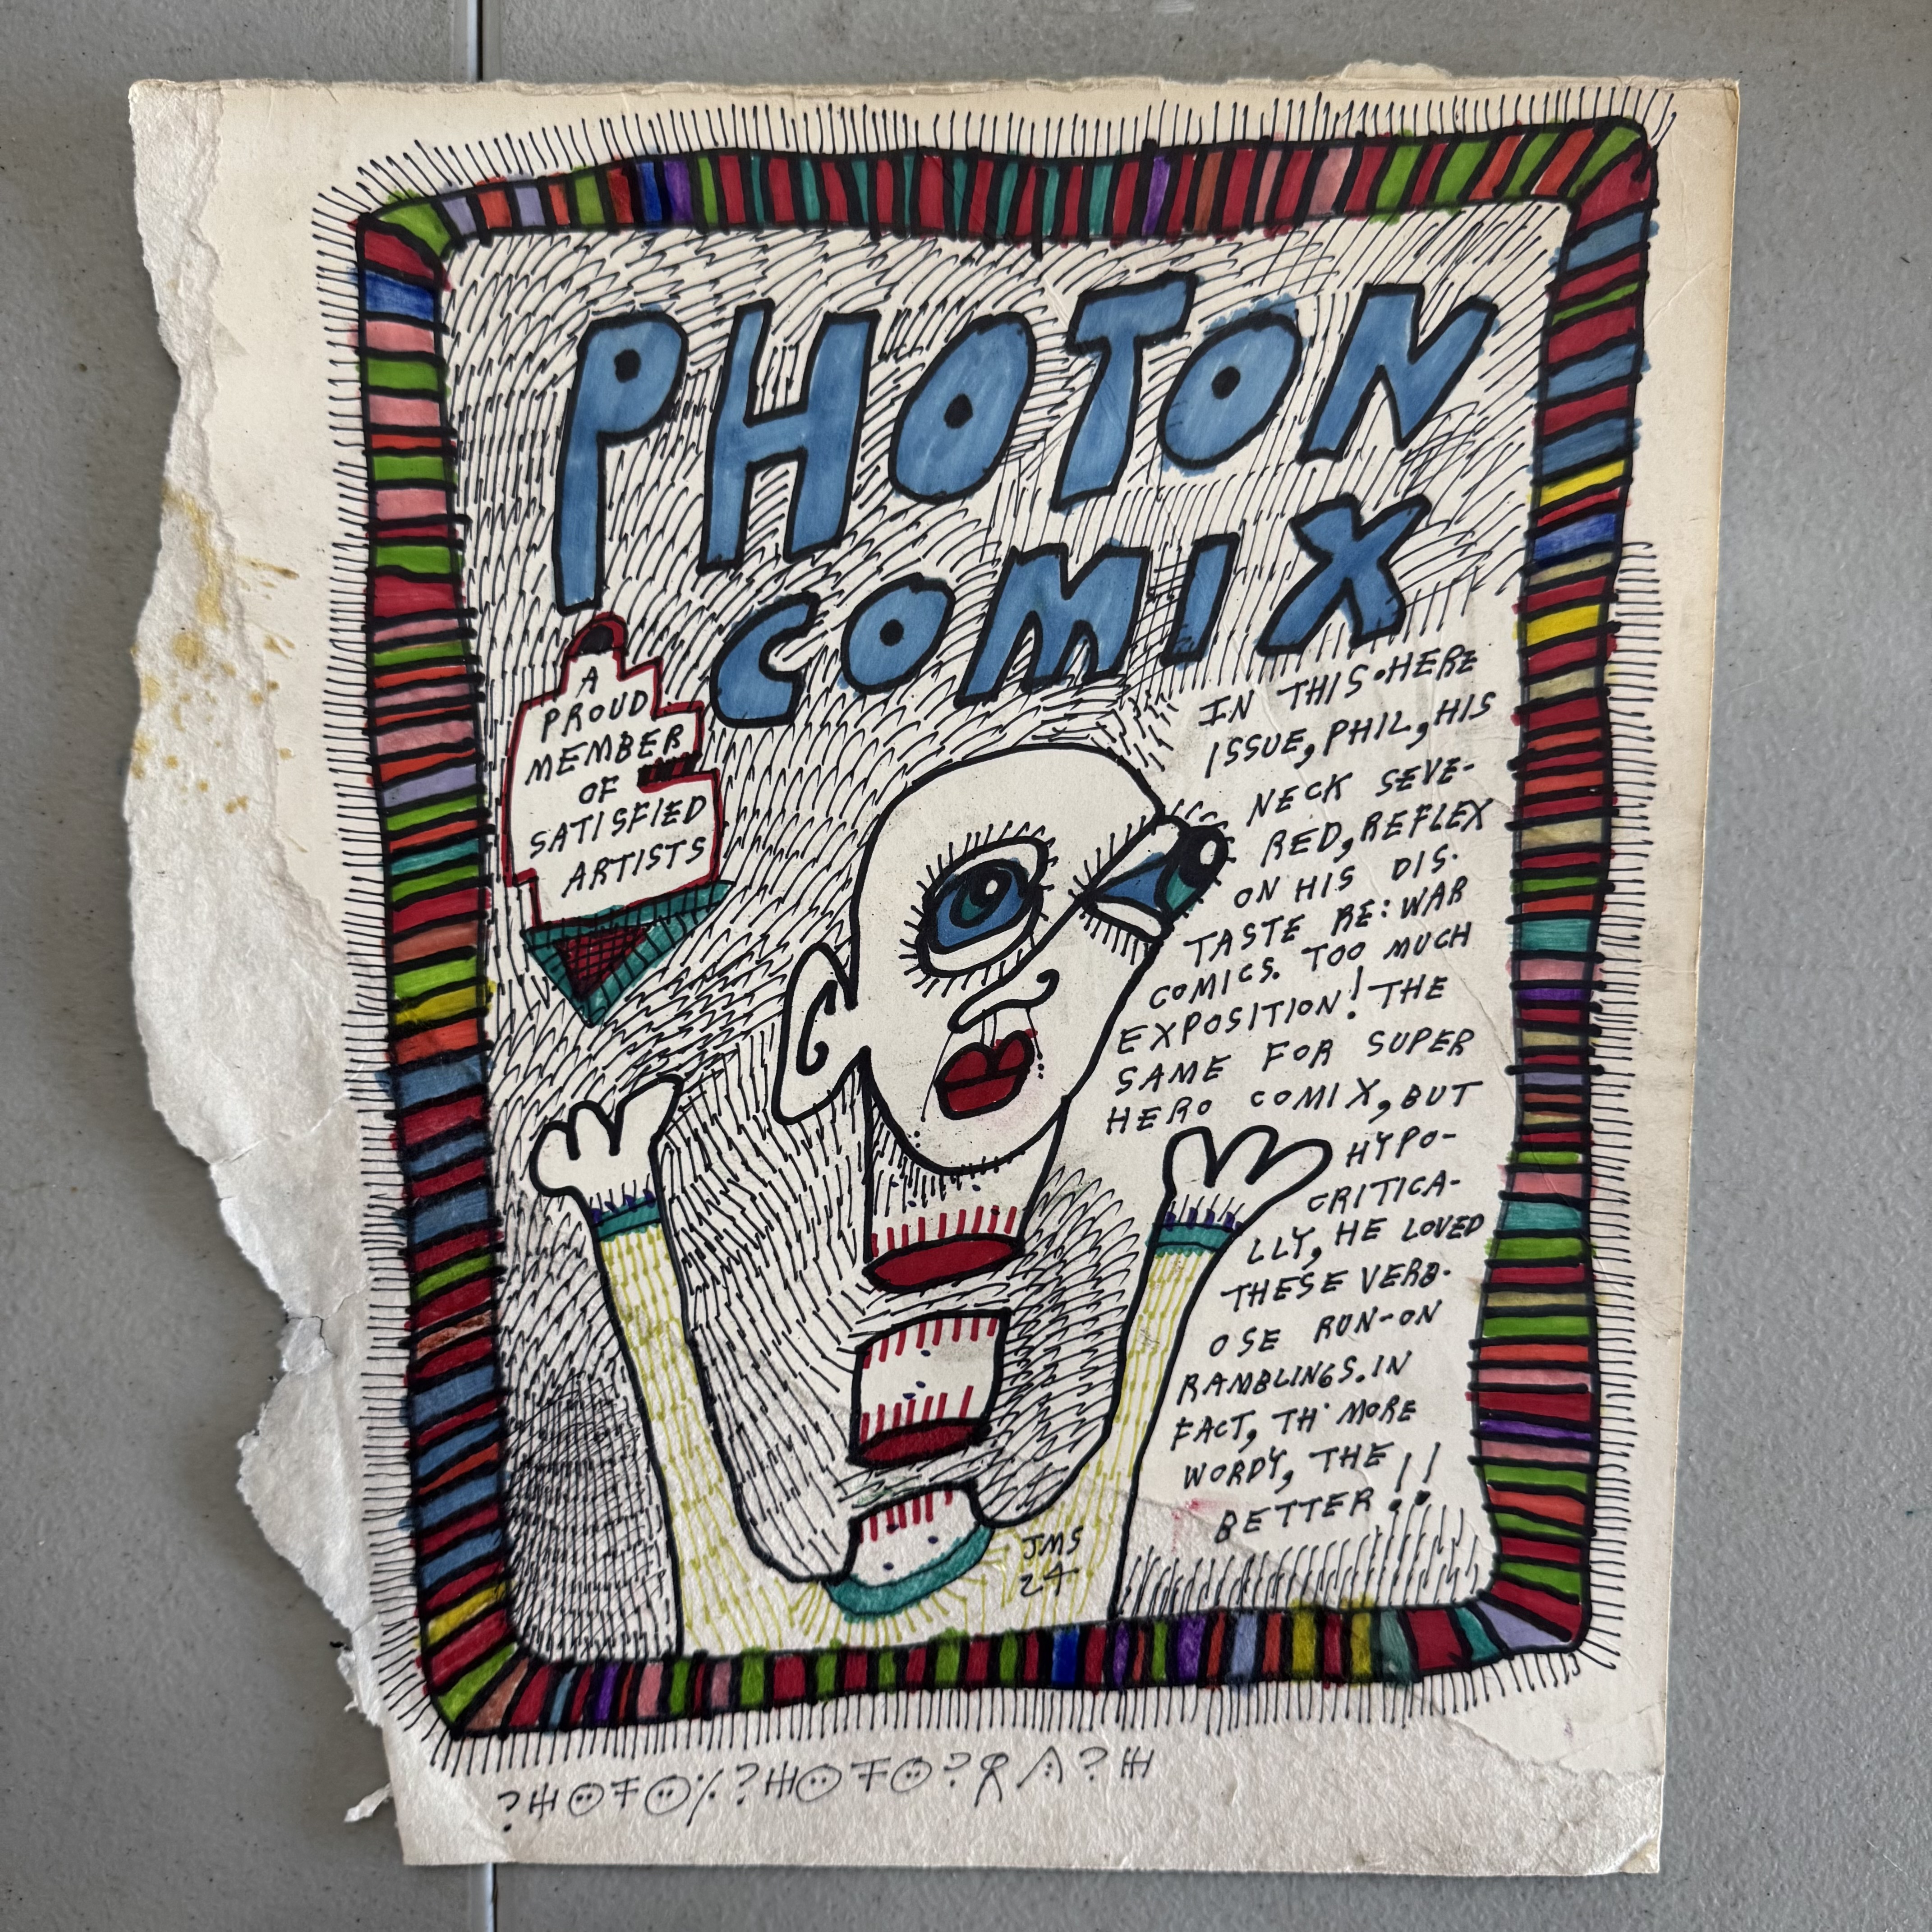 PHOTON
COMIX
A
PROUD
MEMBER
OF
SATISFIED
ARTISTS
IN THIS•HERE
ISSUE, PHIL, HIS
NECK SEVE-
RED, REFLEX
ON HIS DIS-
TASTE RE: WAR
COMICS. TOO MUCH
EXPOSITION! THE
SAME FOR SUPER
HERO COMIX, BUT
HYPO-
CRITICA-
LLY, HE LOVED
THESE VERB-
OSE RUN-ON
RAMBLINGS. IN
FACT, TH' MORE
WORDY, THE
BETTER!!
JMS
24